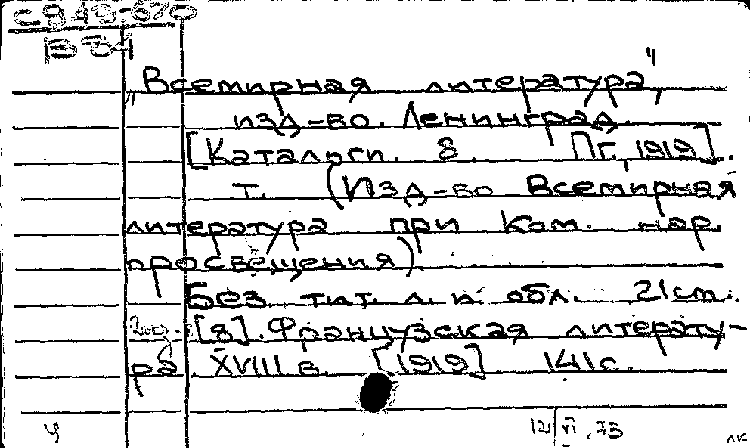 С943-670
В84
„Всемирная литература",
изд-во. Ленинград.
[Каталоги. 8. Пг., 1919].
т. (Изд-во Всемирная
литература при Ком. нар.
просвещения).
Без тит. л. и обл. 21 cm.
[8]. Французская литерату-
ра XVIII в. [1919] 141 с.
12/VI.73